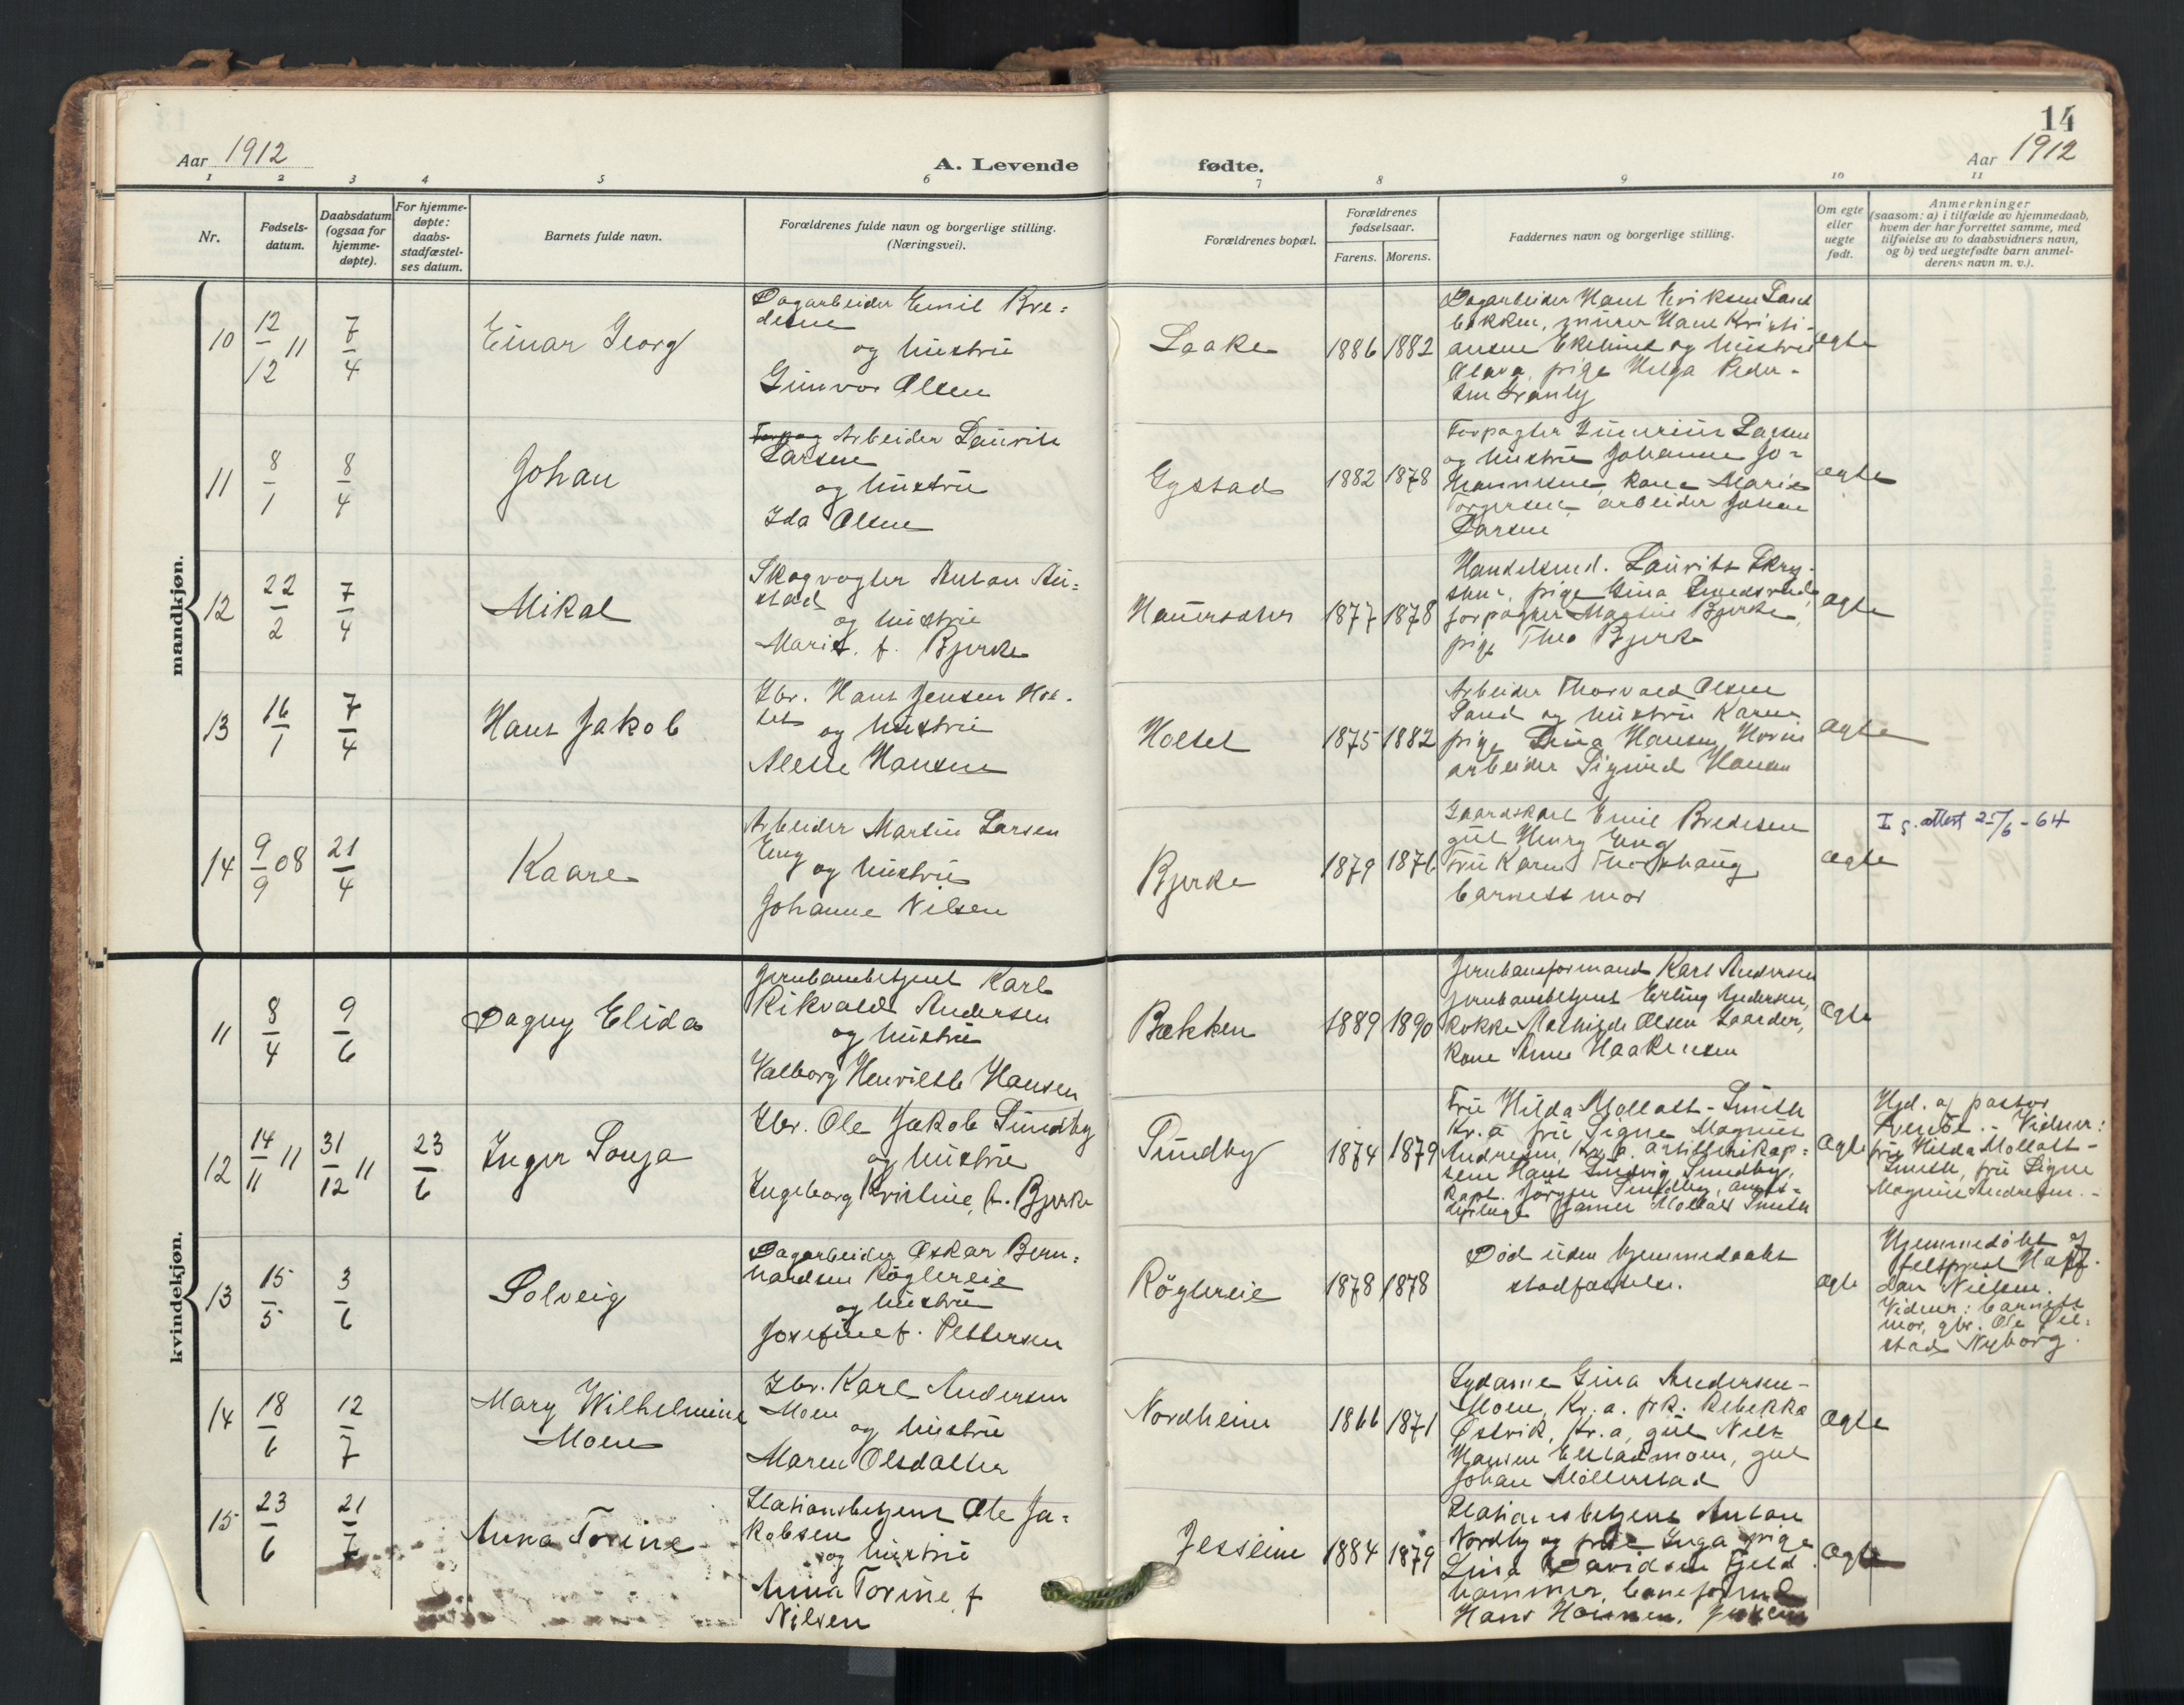 14
Aar 1912
A. Levende
fødte.
Aar 1912
1 2 3 4 5 6 7 8 9 10 11
Nr.
Fødsels-
datum.
Daabsdatum
(ogsaa for
hjemme-
døpte).
For hjemme-
døpte:
daabs-
stadfæstel-
ses datum.
Barnets fulde navn.
Forældrenes fulde navn og borgerlige stilling.
(Næringsvei).
Forældrenes bopæl.
Forældrenes
fødselsaar.
Farens. Morens.
Faddernes navn og borgerlige stilling.
Om egte
eller
uegte
født.
Anmerkninger
(saasom: a) i tilfælde av hjemmedaab,
hvem der har forrettet samme, med
tilføielse av to daabsvidners navn,
og b) ved uegtefødte barn anmel-
derens navn m. v.).
mandkjøn.
10
12/12 11
7/4
Einar Georg
Dagarbeider Emil Bre-
desen
og hustru
Gunvor Olsen
Laake
1886 1882
Dagarbeider Hans Eriksen
bakken, murer Hans Kristi-
ansen og hustru
Olava, pige Helga Peder-
sen Granly
egte
11
8/1
8/4
Johan
Arbeider Laurits
Larsen
og hustru
Ida Olsen
Gystad
1882 1878
Forpagter Larsen
og hustru Johanne Jo-
hannesen, kone Marie
Torgersen, arbeider Johan
Larsen
egte
12
22/2
7/4
Mikal
Skogvogter Anton
og hustru
Marie, f. Bjerke
1877 1878
Handelsmd. Laurits
pige Gina
forpagter Martin Bjerke,
pige Thea Bjerke
egte
13
16/1
7/4
Hans Jakob
Gbr. Hans Jensen Hol-
set
og hustru
Alette Hansen
Holset
1875 1882
Arbeider Thorvald Olsen
Sand og hustru Karen,
pige Lina Hansen
arbeider Sigurd Hansen
egte
14
9/9 08
21/4
Kaare
Arbeider Martin Larsen
Eng
og hustru
Johanne Nilsen
Bjerke
1879 1876
Gaardskarl Emil Bredesen
gut Henry Eng
Fru Karen
barnets mor
egte
I g. attest 25/6-64
kvindekjøn.
11
8/4
9/6
Dagny Elida
Jernbanebetjent Karl
Rikvald Andersen
og hustru
Valborg Henriette Hansen
Bakken
1889 1890
Jernbaneformand Karl Andersen
jernbanebetjent Erling Andersen,
kokke Mathilde Olsen Gaarder,
kone Anne Haakensen
egte
12
14/11 11
31/12 11
23/6
Inger Sonja
Gbr. Ole Jakob Sundby
og hustru
Ingeborg Kristine, f. Bjerke
Sundby
1874 1879
Fru Hilda Mollatt-Smith
Kr.a fru Signe Magnus
Andresen, Kr.a. artillerikap-
tein Hans Ludvig Sundby,
kapt. Jörgen Sundby,
James Mollatt Smith
egte
Hjd. af pastor
Vidner:
fru Hilda Mollatt-
Smith, fru Signe
Magnus Andresen.-
13
15/5
3/6
Solveig
Dagarbeider Oskar Bern-
hardsen Röglereie
og hustru
Josefine f. Pettersen
Röglereie
1878 1878
Död uden hjemmedaabs
stadfæstelse.
egte
Hjemmedöbt af
feltprest Half-
dan Nielsen.
Vidner: barnets
mor, gbr. Ole
stad Nyborg.
14
18/6
12/7
Mary Wilhelmine
Moen
Gbr. Karl Andersen
Moen
og hustru
Maren Olsdatter
Nordheim
1866 1871
Sydame Gina Andersen-
Moen, Kr.a. frk. Rebekka
Østvik, Kr.a, gut Nils
Hansen Elstadmoen, gut
Johan Möllerstad
egte
15
23/6
21/7
Anna Torine
Stationsbetjent Ole Ja-
kobsen
og hustru
Anna Torine f
Nilsen
Jessheim
1884 1879
Stationsbetjent Anton
Nordby og frue Inga, pige
Lina Davidsen Fjeld
hammer, baneformd
Hans Hansen, Jessheim
egte